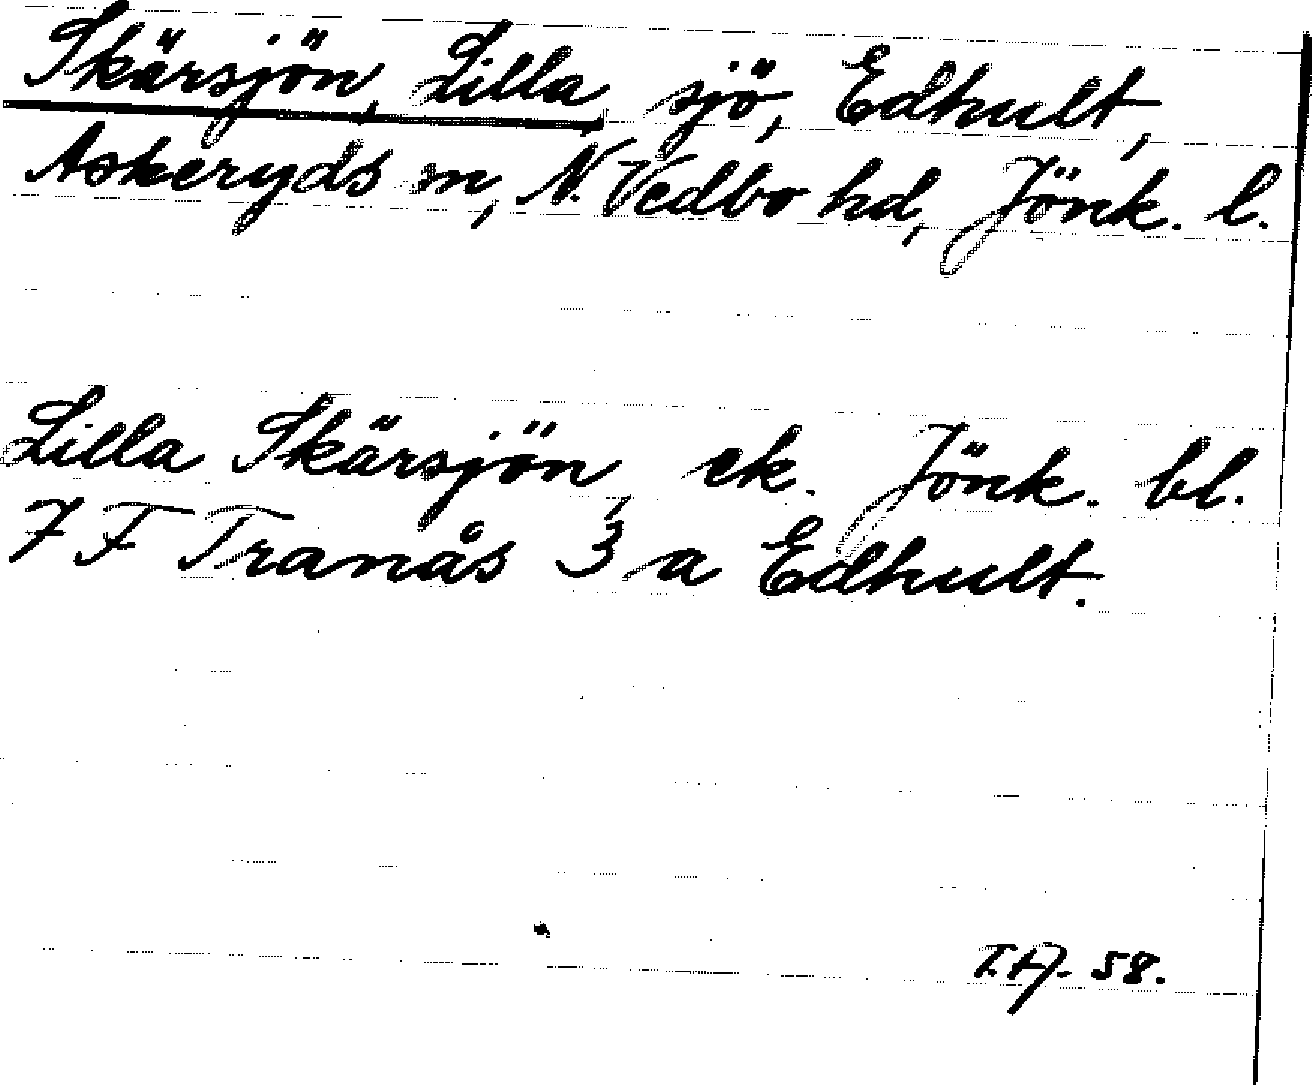 Skärsjön, Lilla, sjö, Edhult,
Askeryds sn, N. Vedbo hd, Jönk. l.
Lilla Skärsjön, ek. Jönk. bl.
7 F Tranås 3 a Edhult.
58.